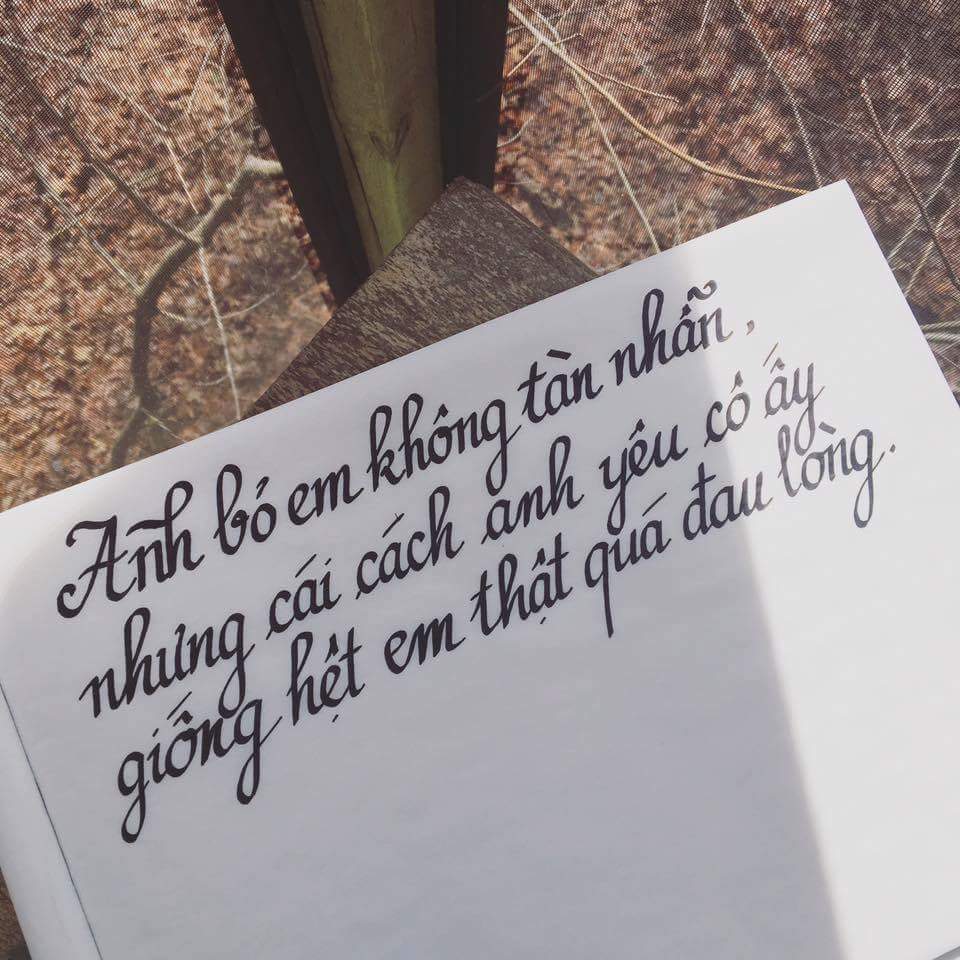 Anh bỏ em không tàn nhẫn,
nhưng cái cách anh yêu cô ấy
giống hệt em thật quá đau lòng.